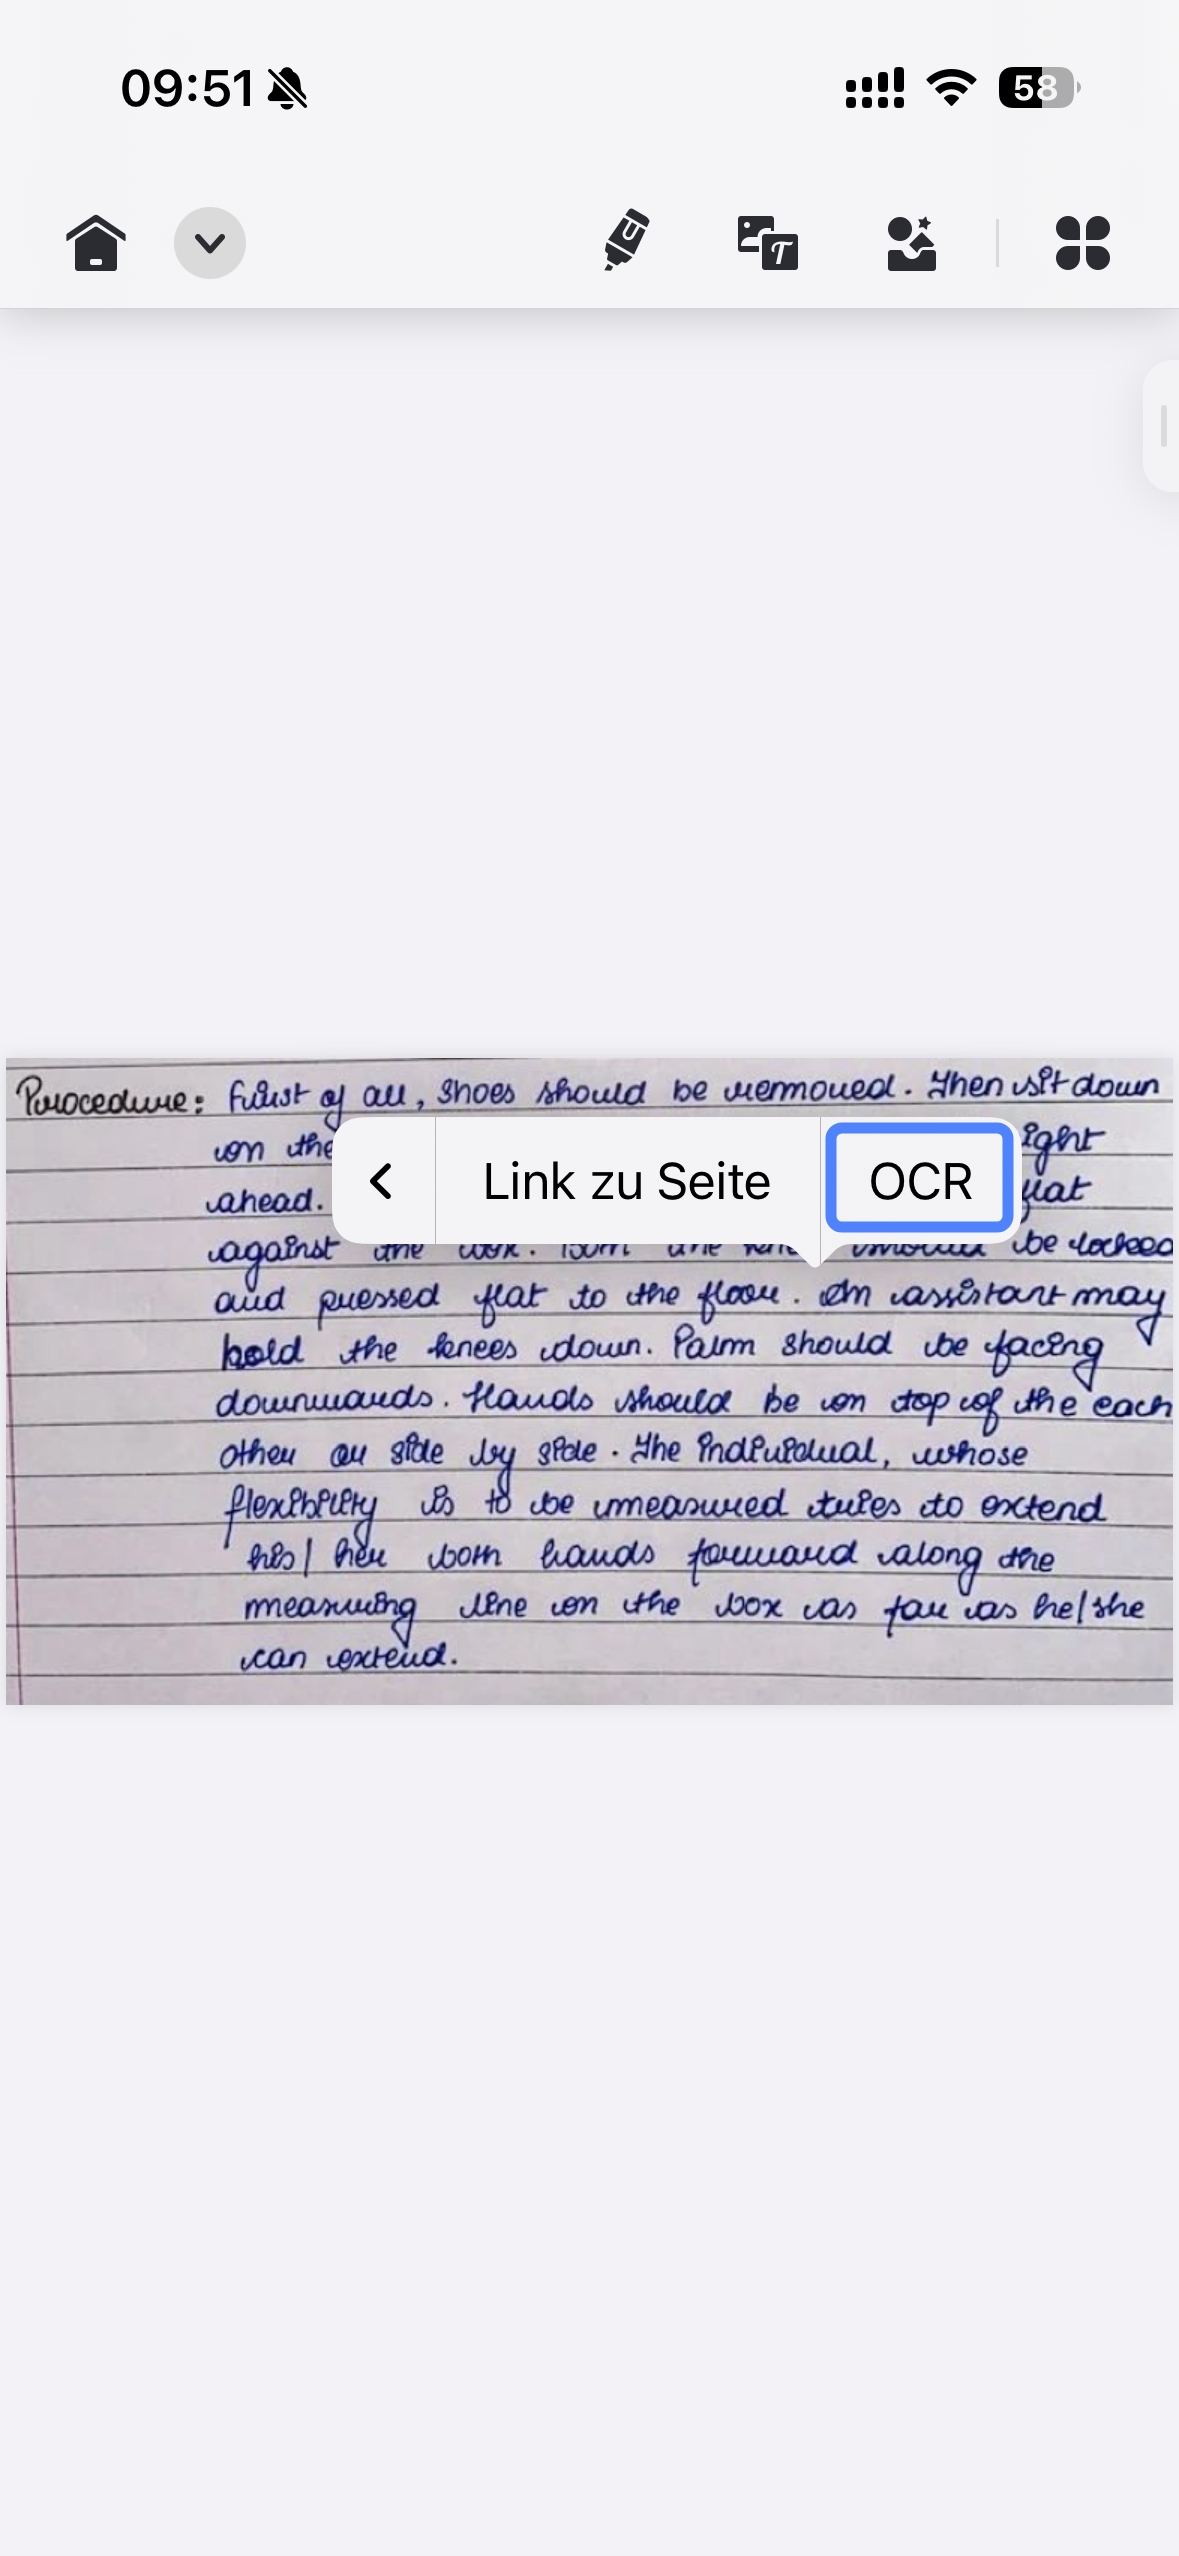 09:51
58
Procedure: First of all, Shoes should be removed. Then sit down
on the ight
ahead. flat
against the box. Both the knees should be locked
and pressed flat to the floor. An assistant may
hold the knees down. Palm should be facing
downwards. Hands should be on top of the each
other or side by side. The individual, whose
flexibility is to be measured tries to extend
his/ her both hands forward along the
measuring line on the box as far as he/she
can extend.
Link zu Seite
OCR